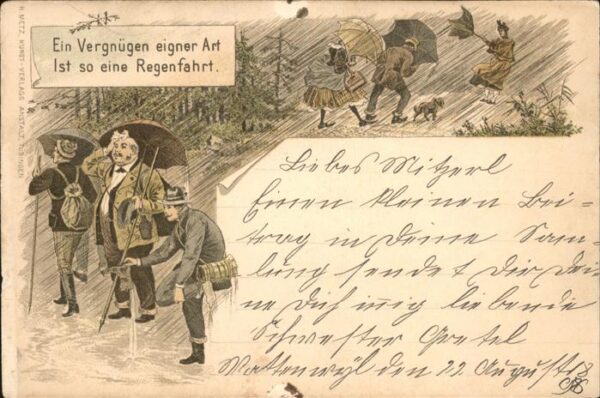 H. METZ, KUNST-VERLAGS-ANSTALT, TÜBINGEN.
Ein Vergnügen eigner Art
Ist so eine Regenfahrt.
Liebes Mitzerl
Einen kleinen Bei-
trag in Deine Sam-
lung sendet Dir Dei-
ne Dich innig liebende
Schwester Gretel
Wattenwyl den 22. August